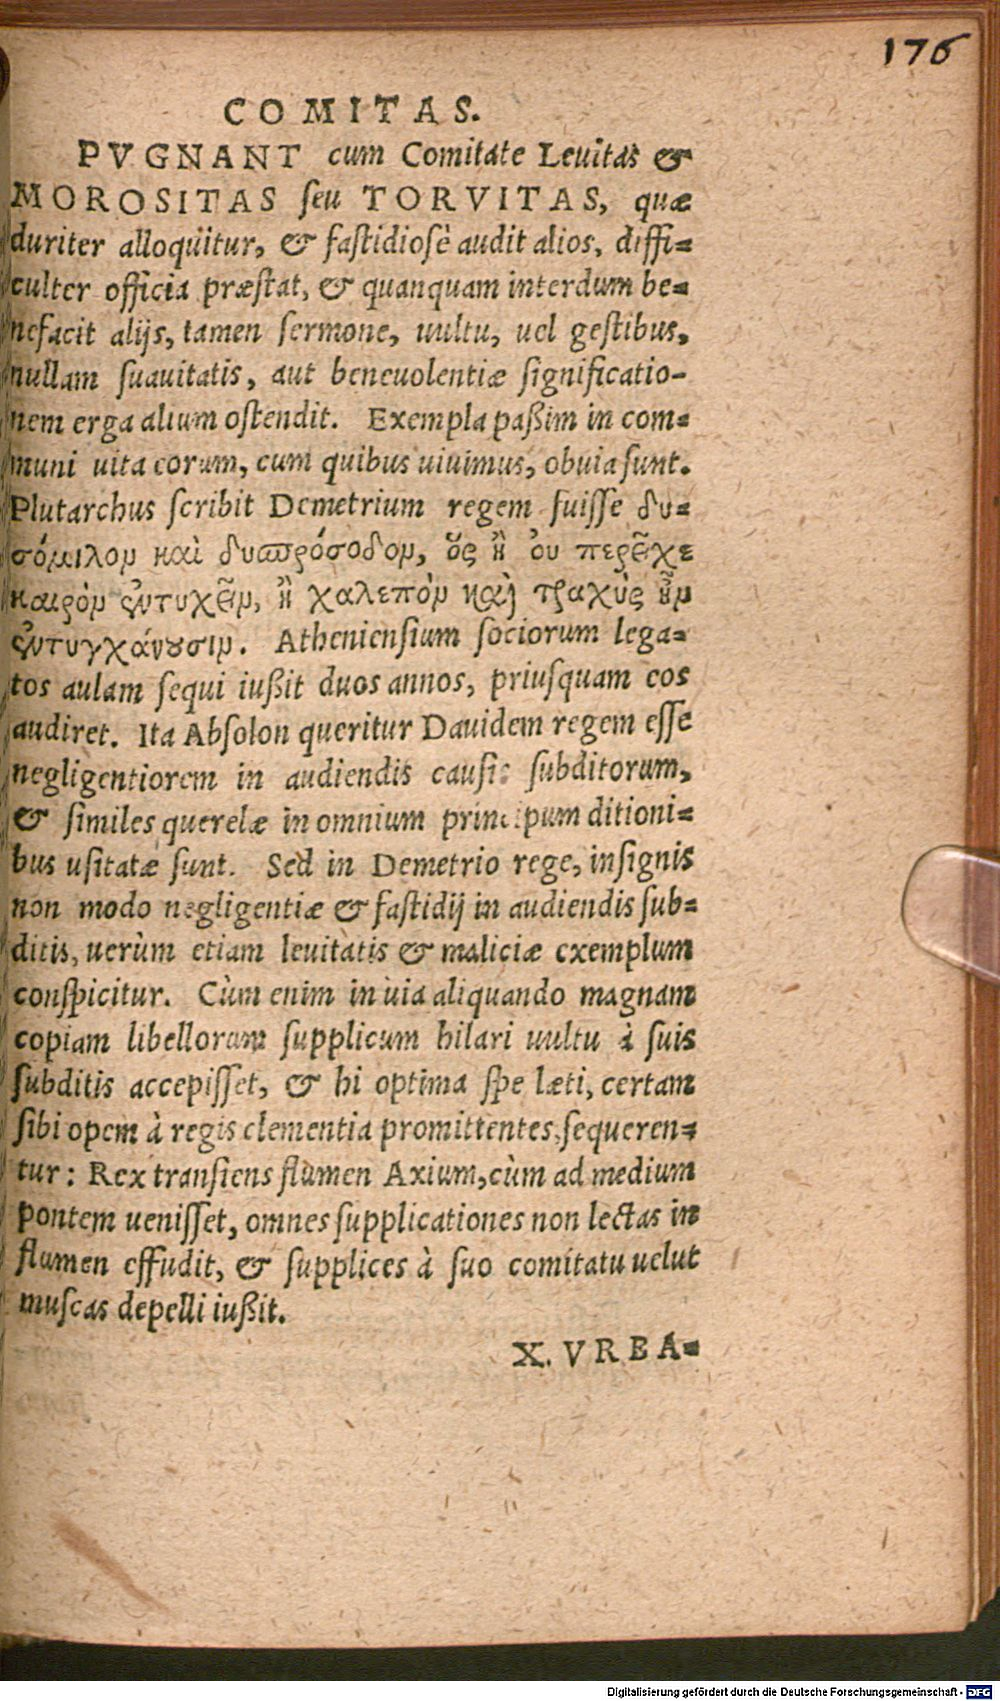 176
COMITAS.
PVGNANT cum Comitate Leuitas &
MOROSITAS ſeu TORVITAS, quæ
duriter alloquitur, & faſtidiosè audit alios, diffi=
culter officia præſtat, & quanquam interdum be=
nefacit alijs, tamen ſermone, uultu, uel geſtibus,
nullam ſuauitatis, aut beneuolentiæ ſignificatio-
nem erga alium oſtendit. Exempla paßim in com=
muni uita eorum, cum quibus uiuimus, obuia ſunt.
Plutarchus ſcribit Demetrium regem fuiſſe δυ=
σόμιλον καὶ δυσπρόσοδον, ὃς ἢ οὐ περεῖχε
καιρὸν ἐντυχεῖν, ἢ χαλεπὸν καὶ τραχὺς ἦν
ἐντυγχάνουσιν. Athenienſium ſociorum lega=
tos aulam ſequi iußit duos annos, priuſquam eos
audiret. Ita Abſolon queritur Dauidem regem eſſe
negligentiorem in audiendis cauſis ſubditorum,
& ſimiles querelæ in omnium principum ditioni=
bus uſitatæ ſunt. Sed in Demetrio rege, inſignis
non modo negligentiæ & faſtidij in audiendis ſub=
ditis, uerùm etiam leuitatis & maliciæ exemplum
conſpicitur. Cùm enim in uia aliquando magnam
copiam libellorum ſupplicum hilari uultu à ſuis
ſubditis accepiſſet, & hi optima ſpe læti, certam
ſibi opem à regis clementia promittentes, ſequeren=
tur: Rex tranſiens flumen Axium, cùm ad medium
pontem ueniſſet, omnes ſupplicationes non lectas in
flumen effudit, & ſupplices à ſuo comitatu uelut
muſcas depelli iußit.
X. VRBA=
Digitalisierung gefördert durch die Deutsche Forschungsgemeinschaft - DFG